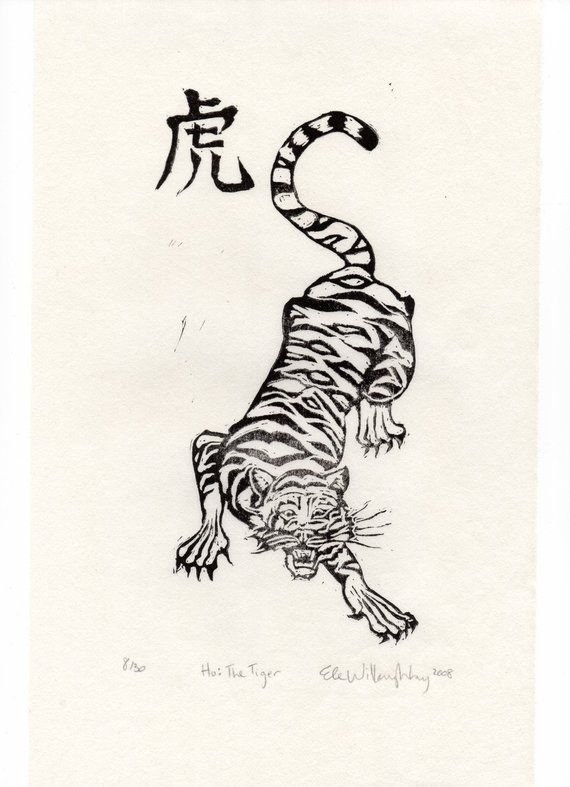 虎
8/30 Hu: The Tiger Ele Willoughby 2008